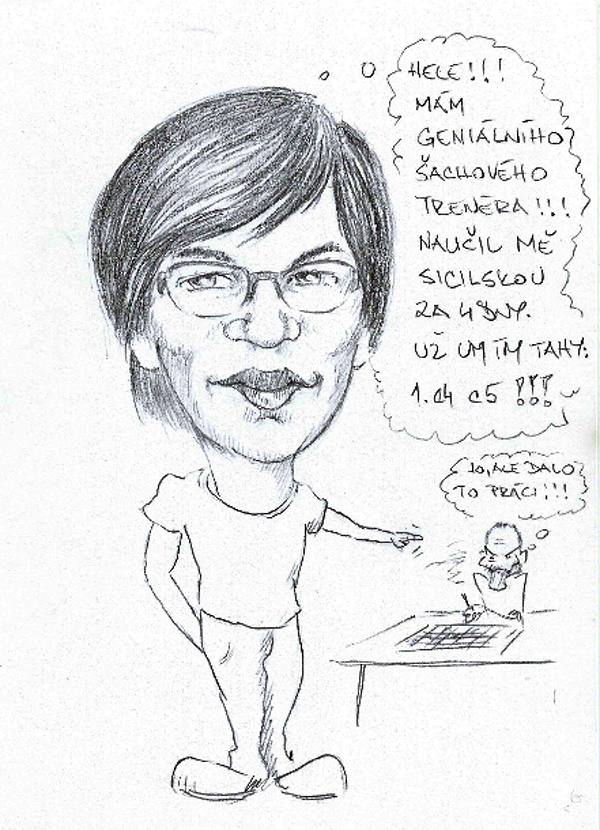 HELE!!!
MÁM
GENIÁLNÍHO
ŠACHOVÉHO
TRENÉRA!!!
NAUČIL MĚ
SICILSKOU
ZA 4 DNY.
UŽ UMÍM TAHY:
1. e4 c5 !!!
JO, ALE DALO
TO PRÁCI!!!